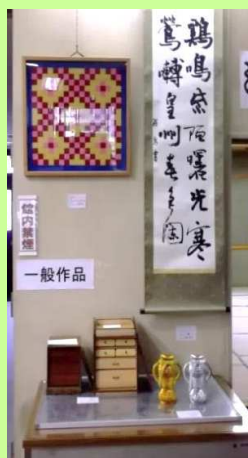 鷄鳴紫陌曙光寒
鶯囀皇州春色闌
館内禁煙
一般作品